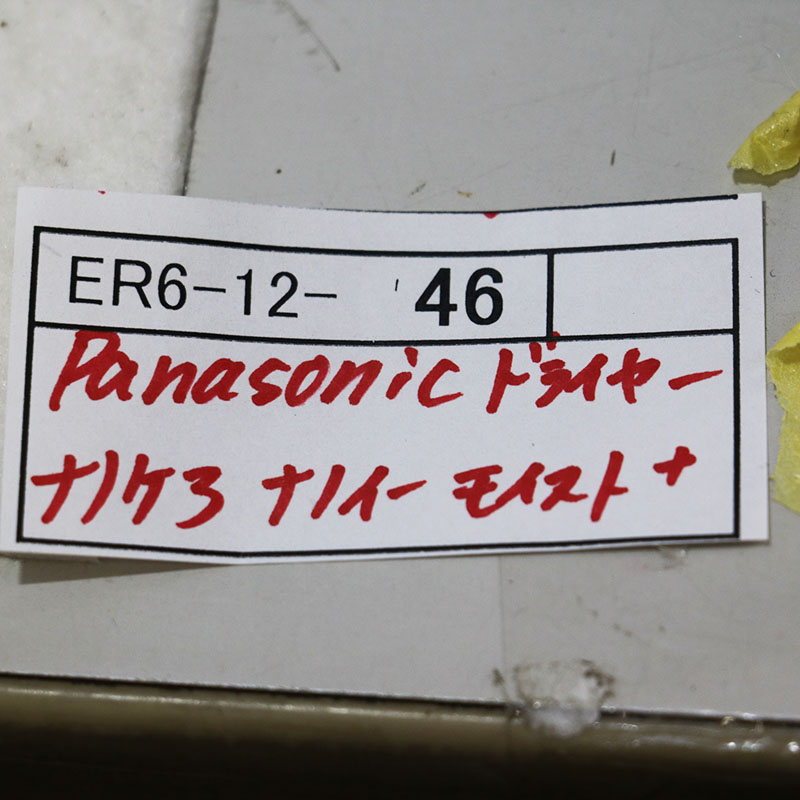 ER6-12- 46
Panasonic ドライヤー
ナノケア ナノイー モイスト+